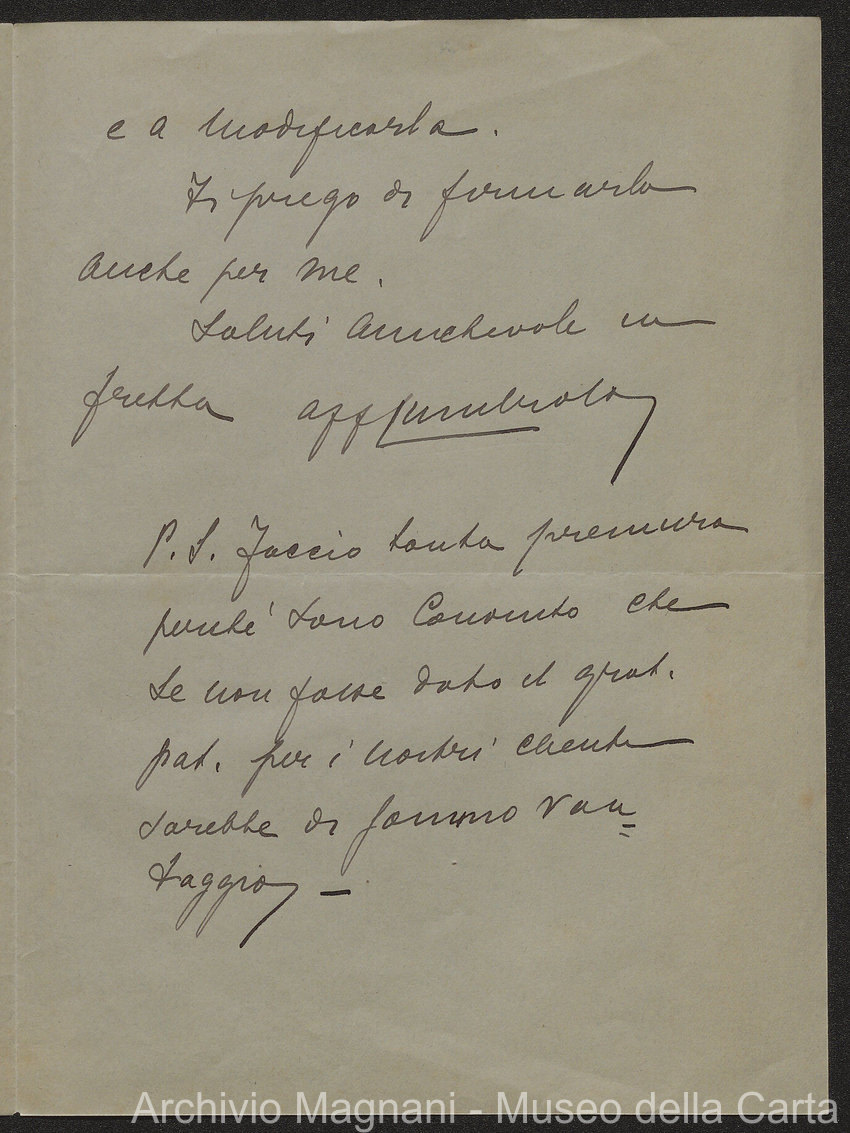 e a modificarla.
Ti prego di firmarla
anche per me.
Saluti amichevole in
fretta aff
P.S. Faccio tanta premura
perché sono convinto che
se non fosse dato il grat.
pat. per i nostri clienti
sarebbe di sommo van=
taggio —
Archivio Magnani - Museo della Carta